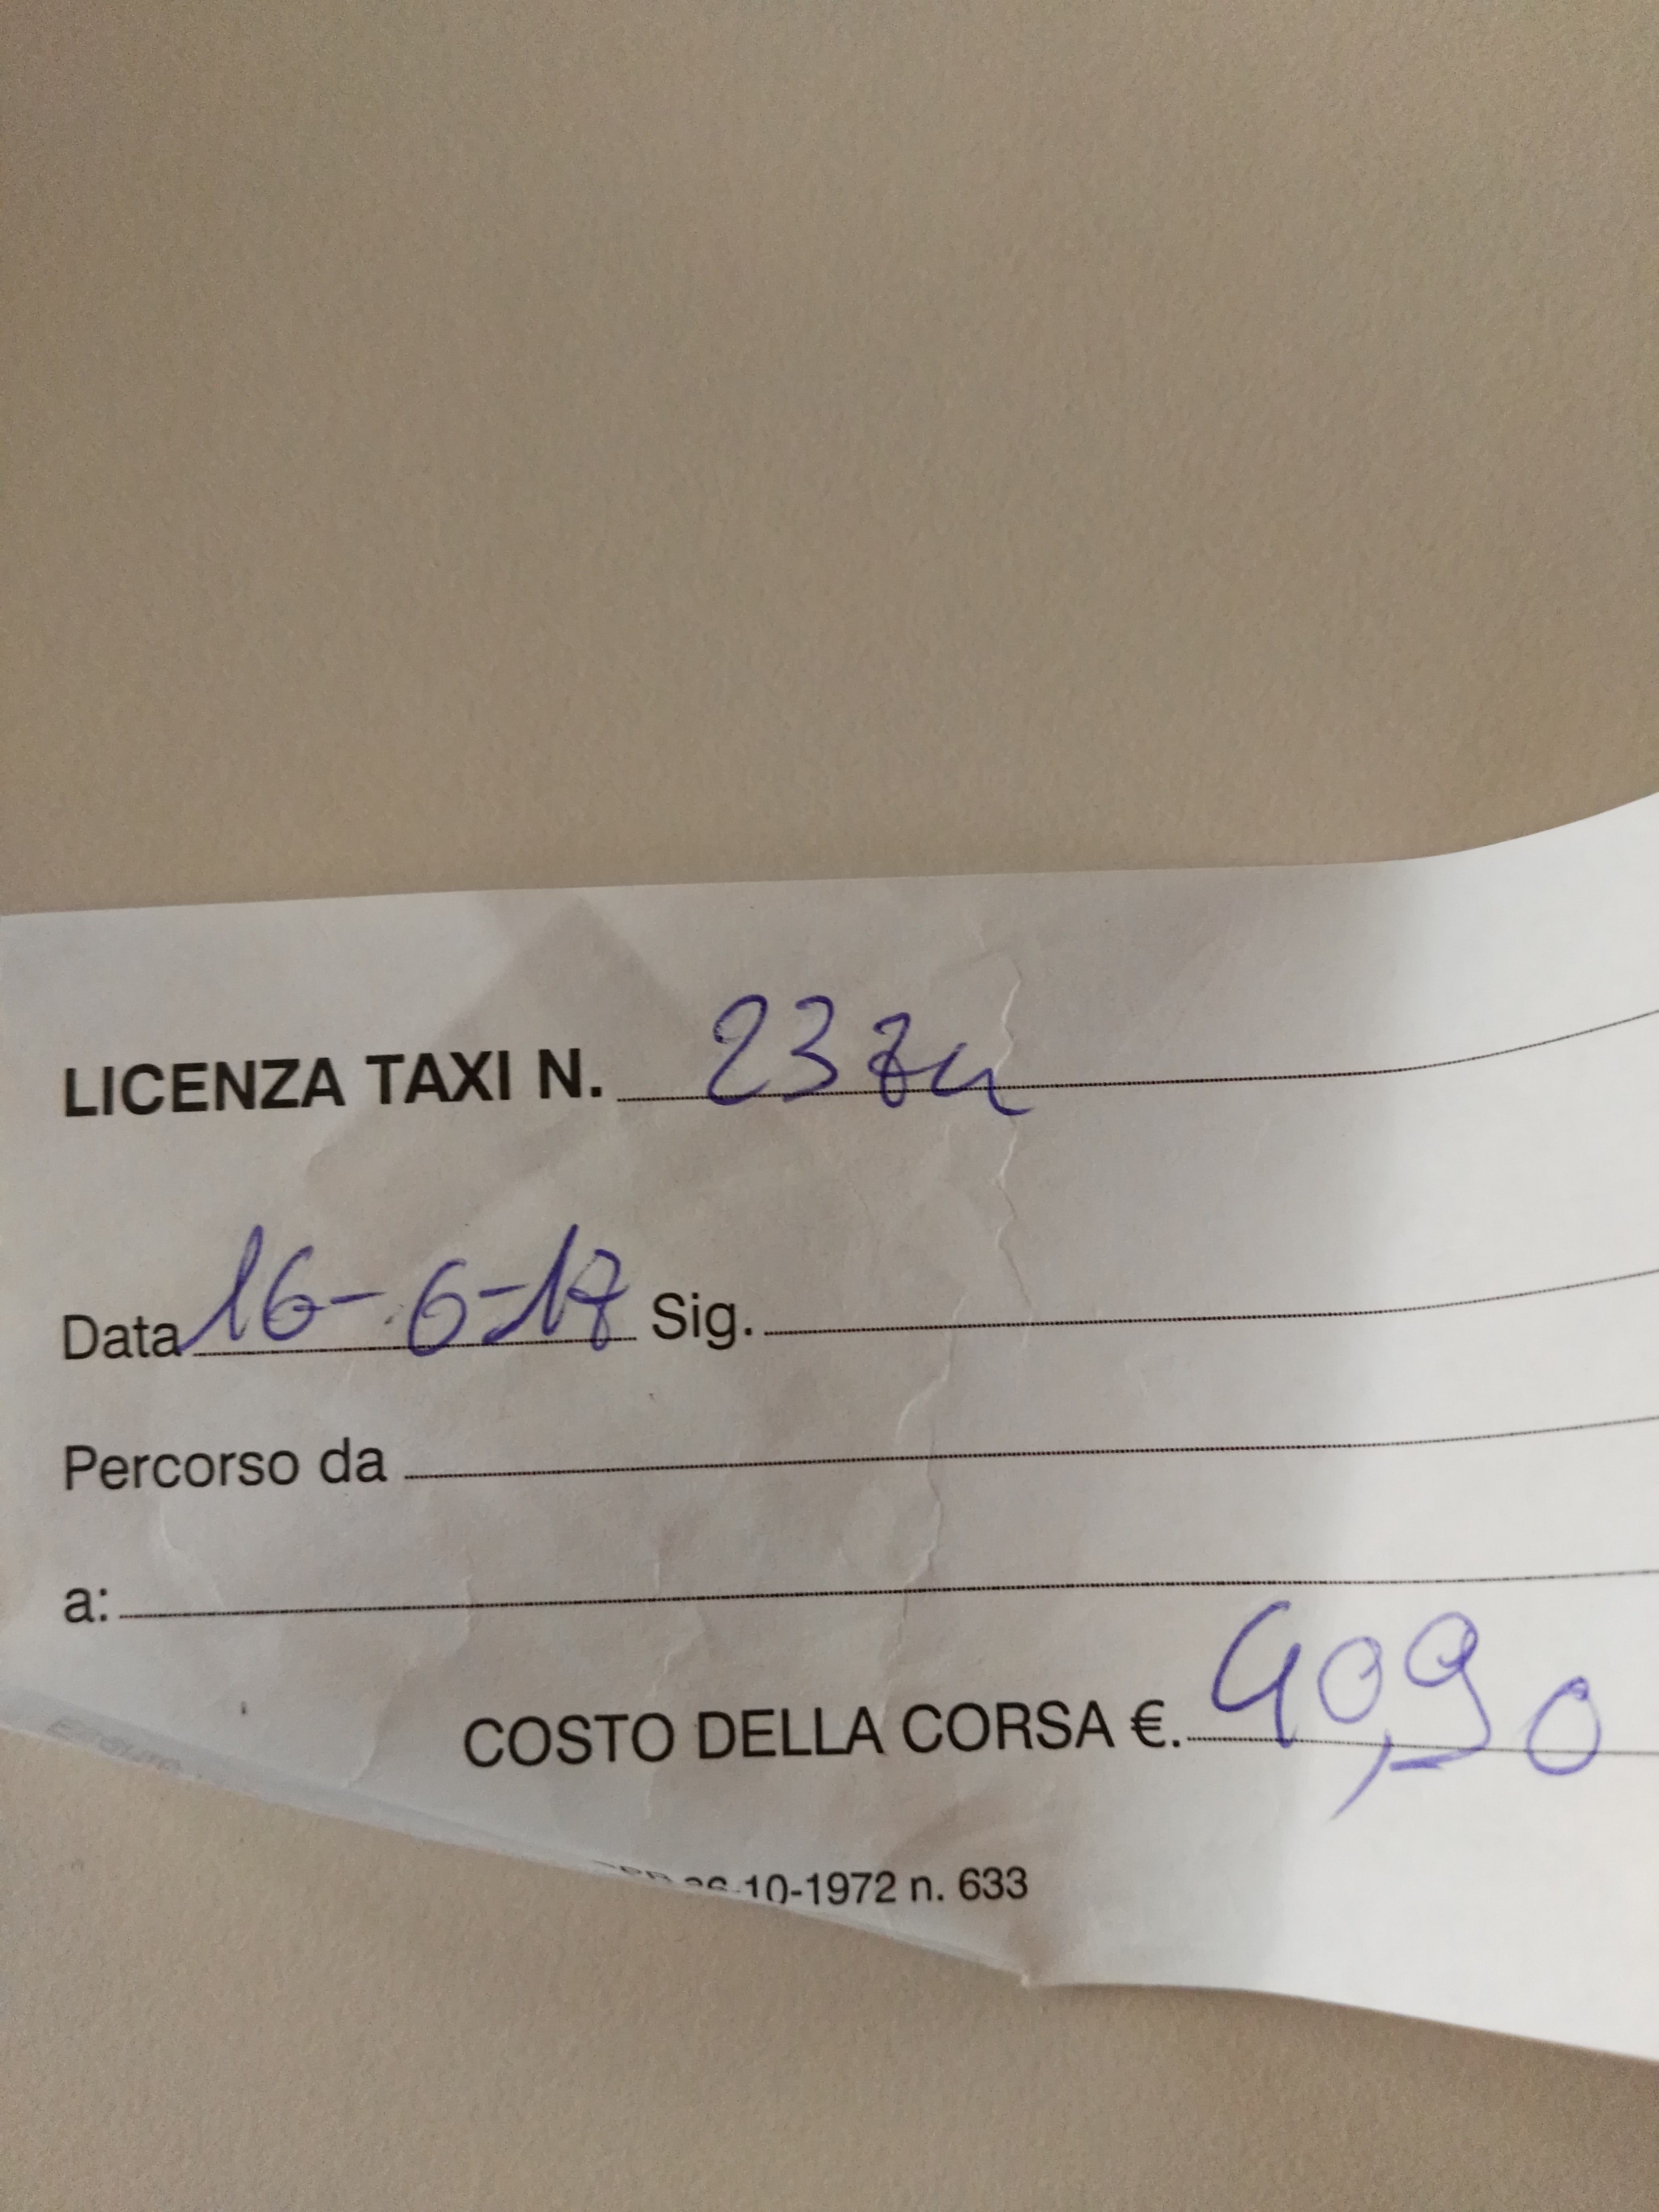 LICENZA TAXI N. 2374
Data 16-6-17 Sig.
Percorso da
a:
COSTO DELLA CORSA €. 40,90
10-1972 n. 633